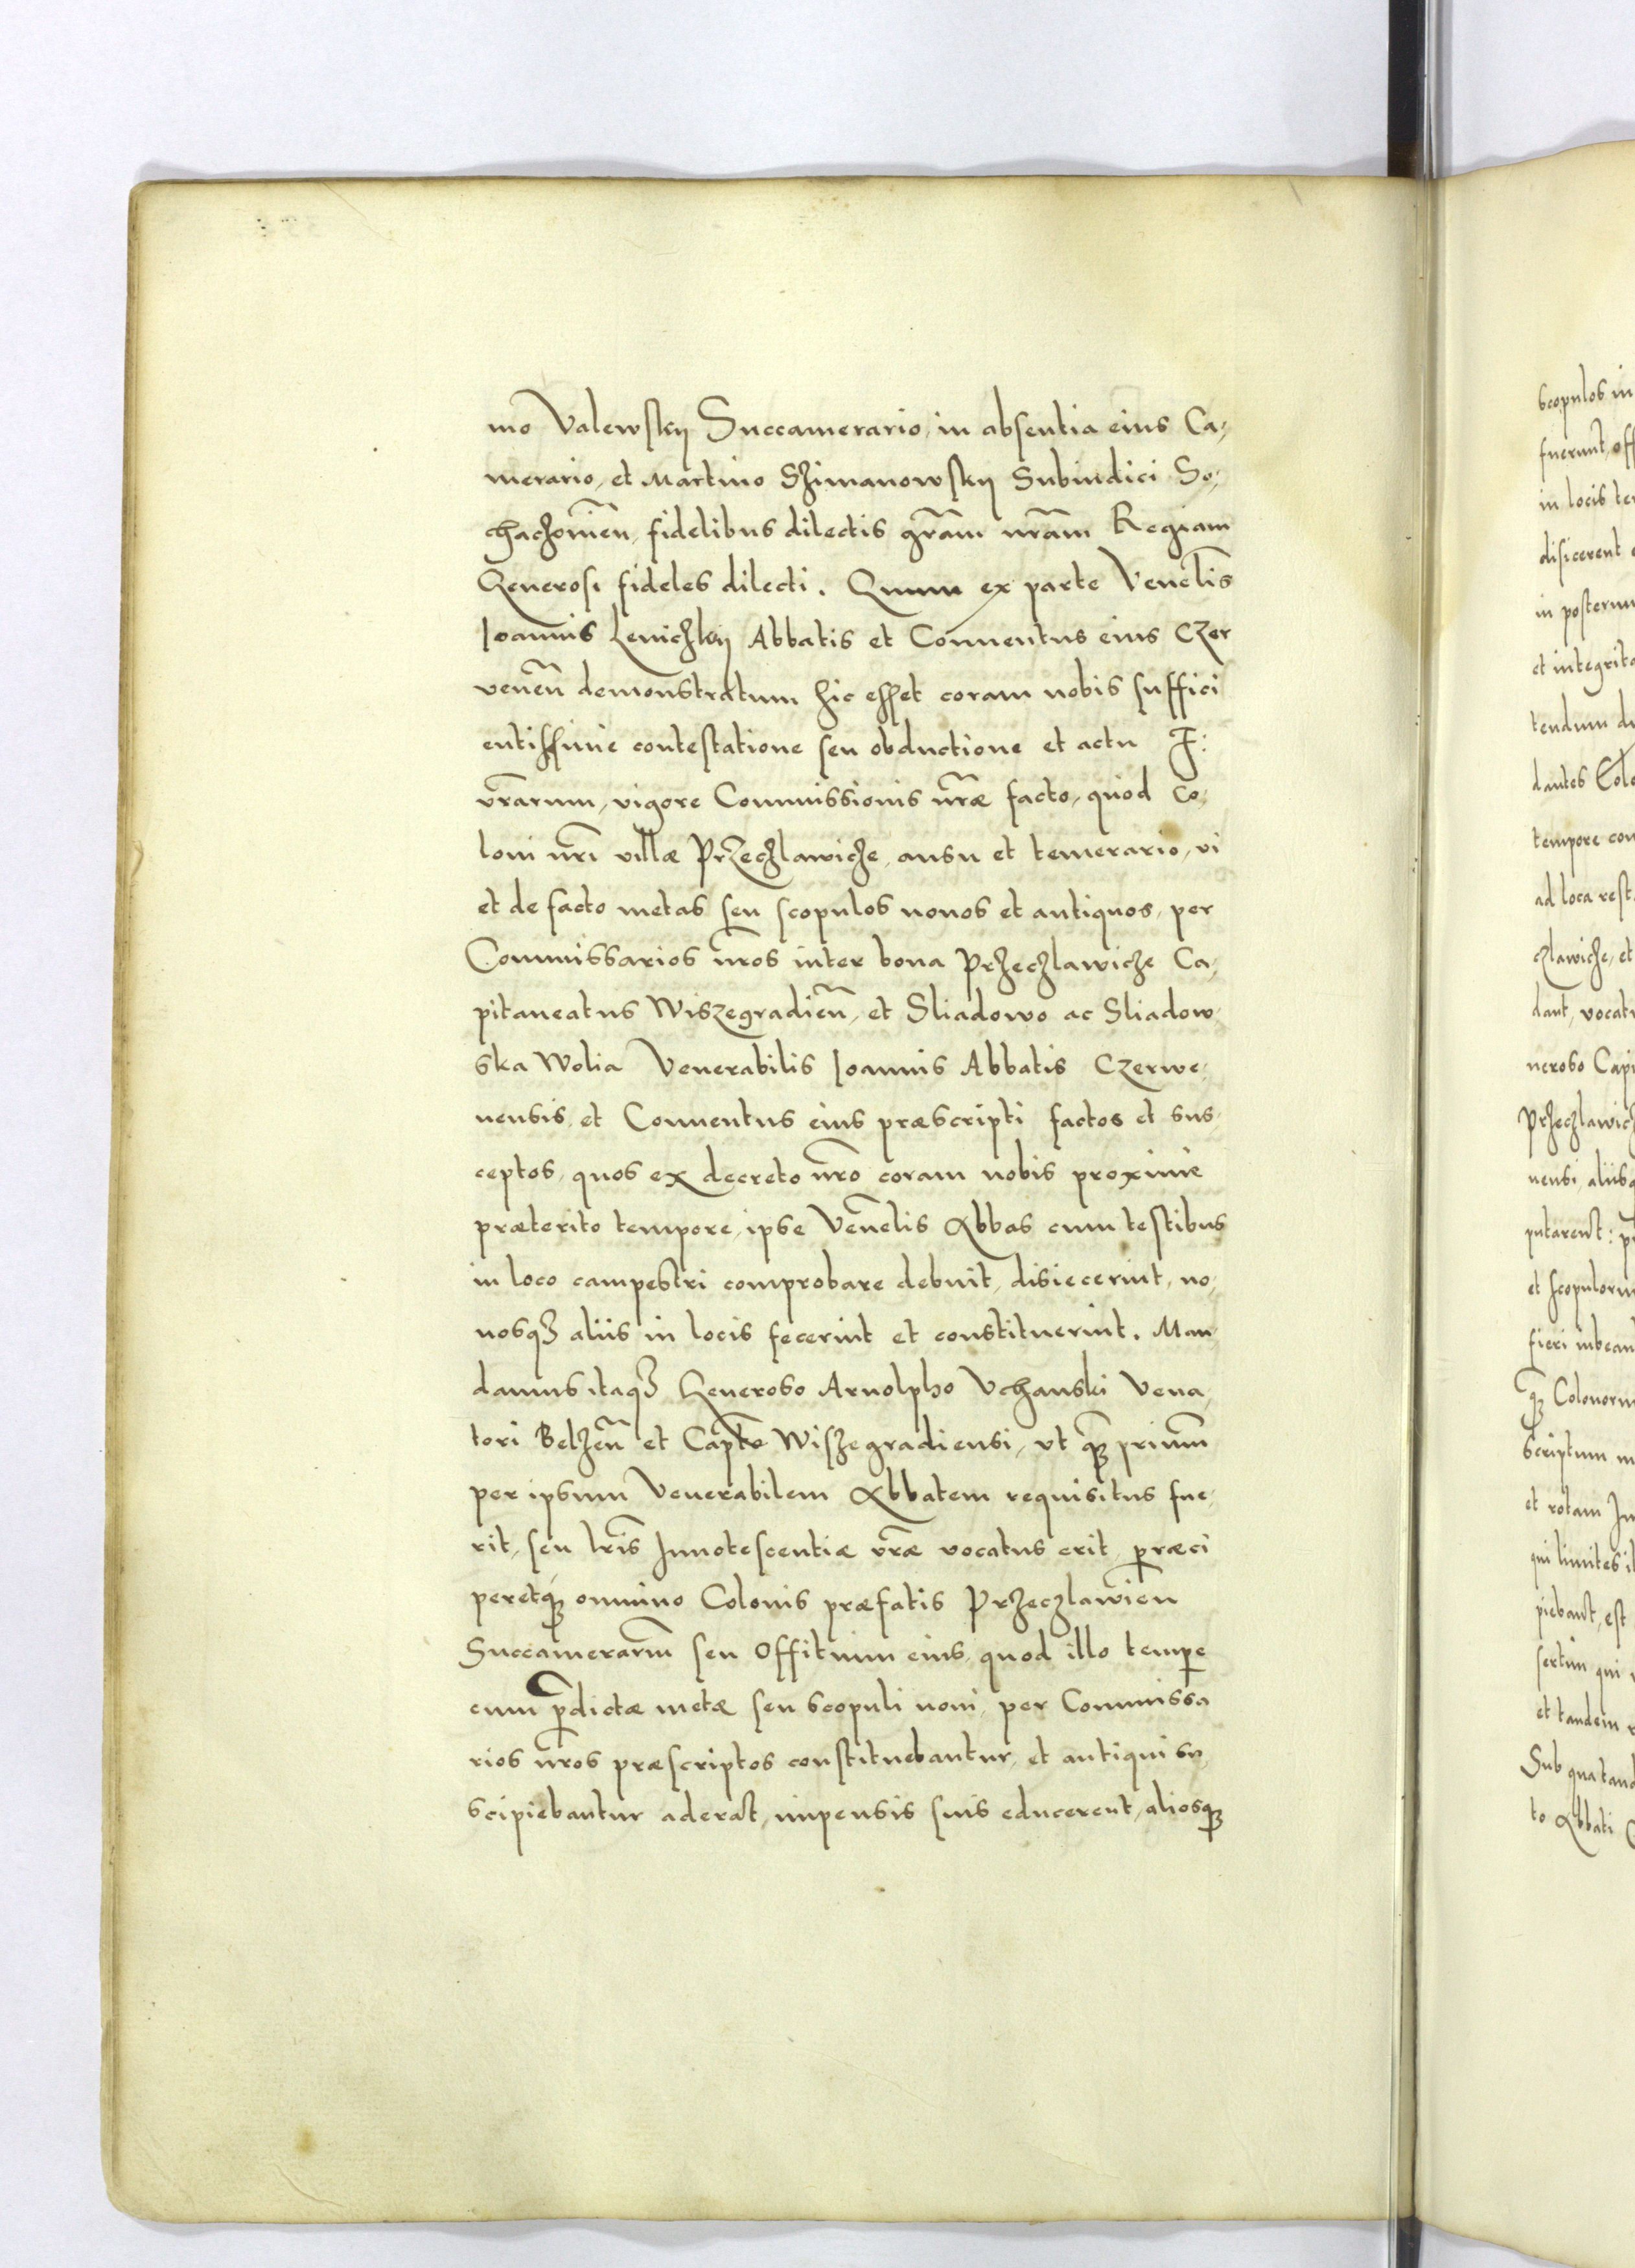 mo Valewskij Succamerario, in absentia eius Ca,
merario, et Martino Szimanowskij Subiudici So,
chaczovien̄, fidelibus dilectis gr̄am nr̄am Regiam
Generosi fideles dilecti. Quum ex parte Veneb̄lis
Ioannis Leniczkij Abbatis et Conuentus eius Czer
venen̄ demonstratum hic esset coram nobis suffici
entissime contestatione seu obductione et actu F:
vr̄arum, vigore Commissionis nr̄æ facto, quod co,
loni nr̄i villæ Przeczlawicze, ausu et temerario, vi
et de facto metas seu scopulos nouos et antiquos, per
Commissarios nr̄os inter bona Przeczlawicze Ca,
pitaneatus Wiszegradien̄, et Sliadowo ac Sliadow,
ska Wolia Venerabilis Ioannis Abbatis Czerwe,
nensis, et Conuentus eius præscripti factos et sus,
ceptos, quos ex decreto nr̄o coram nobis proxime
præterito tempore, ipse Veneb̄lis Abbas cum testibus
in loco campestri comprobare debuit, disiecerint, no,
uosq3 aliis in locis fecerint et constituerint. Man,
damus itaq3 Generoso Arnolpho Vchanski Vena,
tori Belzen̄ et Capt̄o Wiszegradiensi, vt q̄3 primum
per ipsum Venerabilem Abbatem requisitus fue,
rit, seu lr̄is Innotescentiæ vr̄æ vocatus erit, præci
peretq3 omnino Colonis præfatis Przeczlawien̄
Succamerariū seu Offitium eius, quod illo temp̄e
cum p̄dictæ metæ seu scopuli noui, per Commissa
rios nr̄os præscriptos constituebantur, et antiqui su,
scipiebantur aderat, impensis suis educerent, aliosq3
scopulos in
fuerunt, off
in locis te
disicerent
in posterum
et integrita
tendum du
dantes Colo
tempore con
ad loca rest
czlawicze, et
dant, vocat
neroso Capi
Przeczlawicz
nensi, aliisq
putarent: p
et scopuloru
fieri iubean
q3 Colonoru
scriptum m
et rotam In
qui limites i
piebant, est
sertim qui
et tandem
Sub qua tand
to Abbati